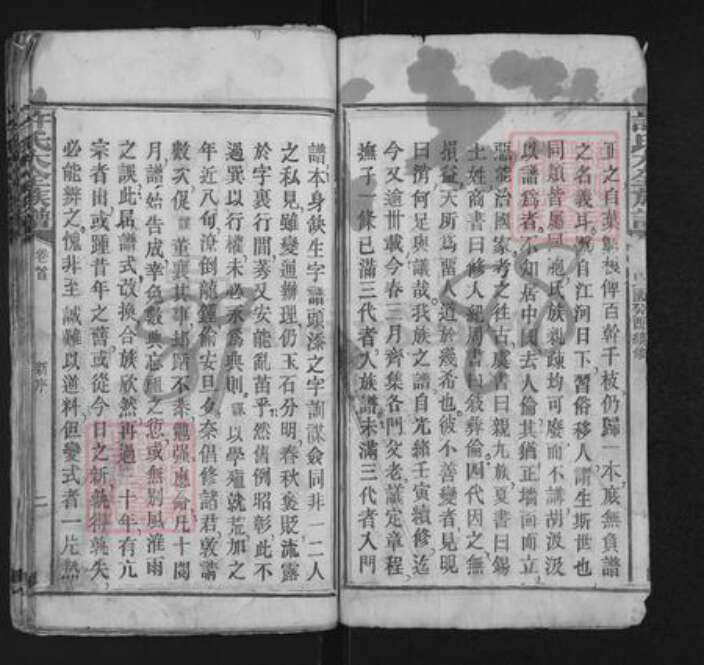 正之自葉歸根俾百幹千枝仍歸一本庶無負譜
之名義耳竊自江河日下習俗移人謂生斯世也
同類皆屬同胞氏族親疎均可廢而不講胡汲汲
以譜爲者不知居中國去人倫其猶正墻面而立
惡能治國家考之往古虞書曰親九族夏書曰錫
土姓商書曰修人紀周書曰敍彝倫四代因之無
損益天所爲留人道於幾希也彼不善變者見睍
曰消何足與議哉我族之譜自光緒壬寅續修迄
今又逾卅載今春三月齊集各門父老議定章程
撫子一條已滿三代者入族譜未滿三代者入門
譜本身缺生字譜頭添之字謝謀僉同非一二人
之私見雖變通辦理仍玉石分明春秋褒貶流露
於字裏行間莠又安能亂苗乎然舊例昭彰此不
過巽以行權未必永爲典則謀以學殖就荒加之
年近八旬潦倒龍鍾偷安旦夕奈倡修諸君敦請
數次促董襄其事却諸不恭勉強應命凡十閱
月譜始告成幸免數典忘祖之愆或無別風淮雨
之誤此屆譜式改換合族欣然再過三十年有亢
宗者出或踵昔年之舊或從今日之新孰得孰失
必能辨之愧非至誠難以逆料但變式者一片熱
許氏大全族譜
卷首
新序
二
許氏大全族譜
民國癸酉續修